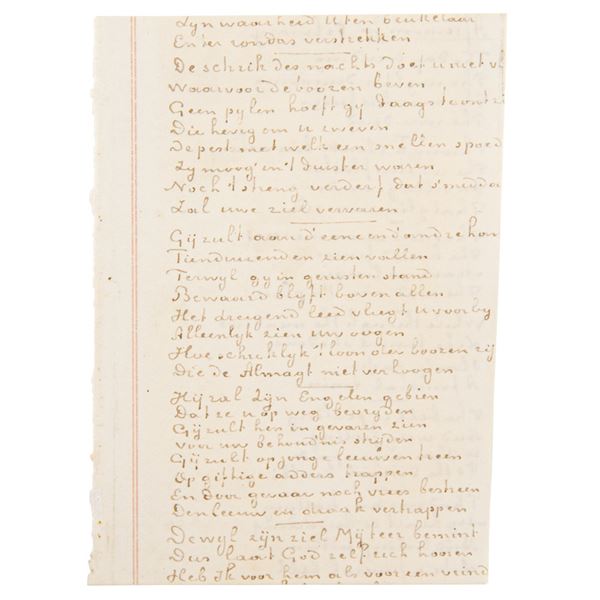 Zyn waarheid U ten beukelaar
En ter rondas verstrekken
De schrik des nachts doet u niet vl
Waarvoor de boozen beven
Geen pylen hoeft gy daags te ontzi
Die hevig om u zweven
De pest met welk een snellen spoed
Zy moog' in 't duister waren
Noch 't streng verderf dat s'midda
Zal uwe ziel vervaren
Gij zult aan d'eene en d'andre han
Tienduizenden zien vallen
Terwyl gy in gerusten stand
Bewaard blyft boven allen
Het dreigend leed vliegt u voorby
Alleenlyk zien uw oogen
Hoe schriklyk 't loon der boozen zij
Die de Almagt niet verhoogen
Hij zal Zyn Engelen gebien
Dat ze u op weg bevryden
Gij zult hen in gevaren zien
voor uw behoudnis stryden
Gij zult op jonge leeuwen treen
Op giftige adders trappen
En door gevaar noch vrees bestreen
Den leeuw en draak vertrappen
Dewyl zyn ziel My teer bemint
Dus laat God zelf zich hooren
Heb Ik voor hem als voor een vrind